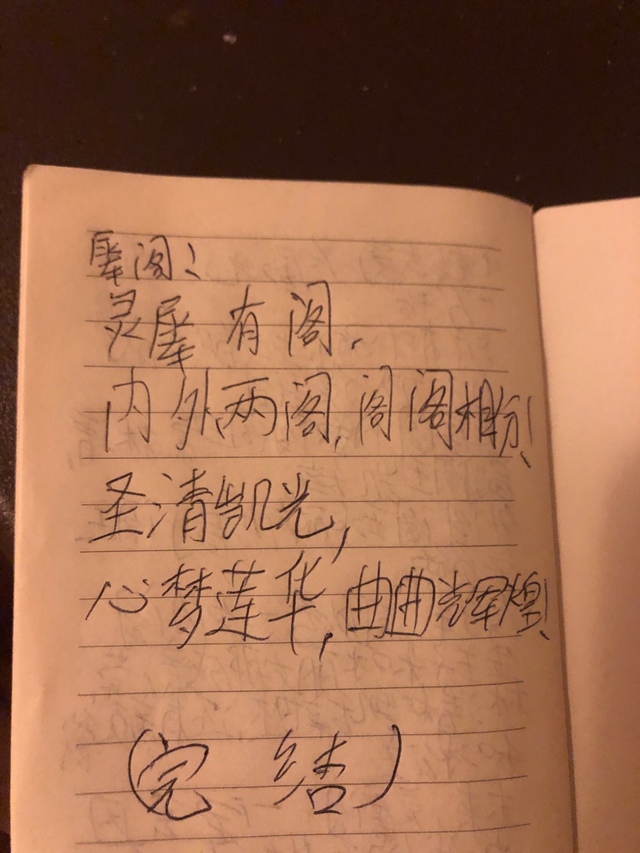 犀阁：
灵犀有阁，
内外两阁，阁阁相份！
圣清凯光，
心梦莲华，曲曲光辉煌！
（完结）